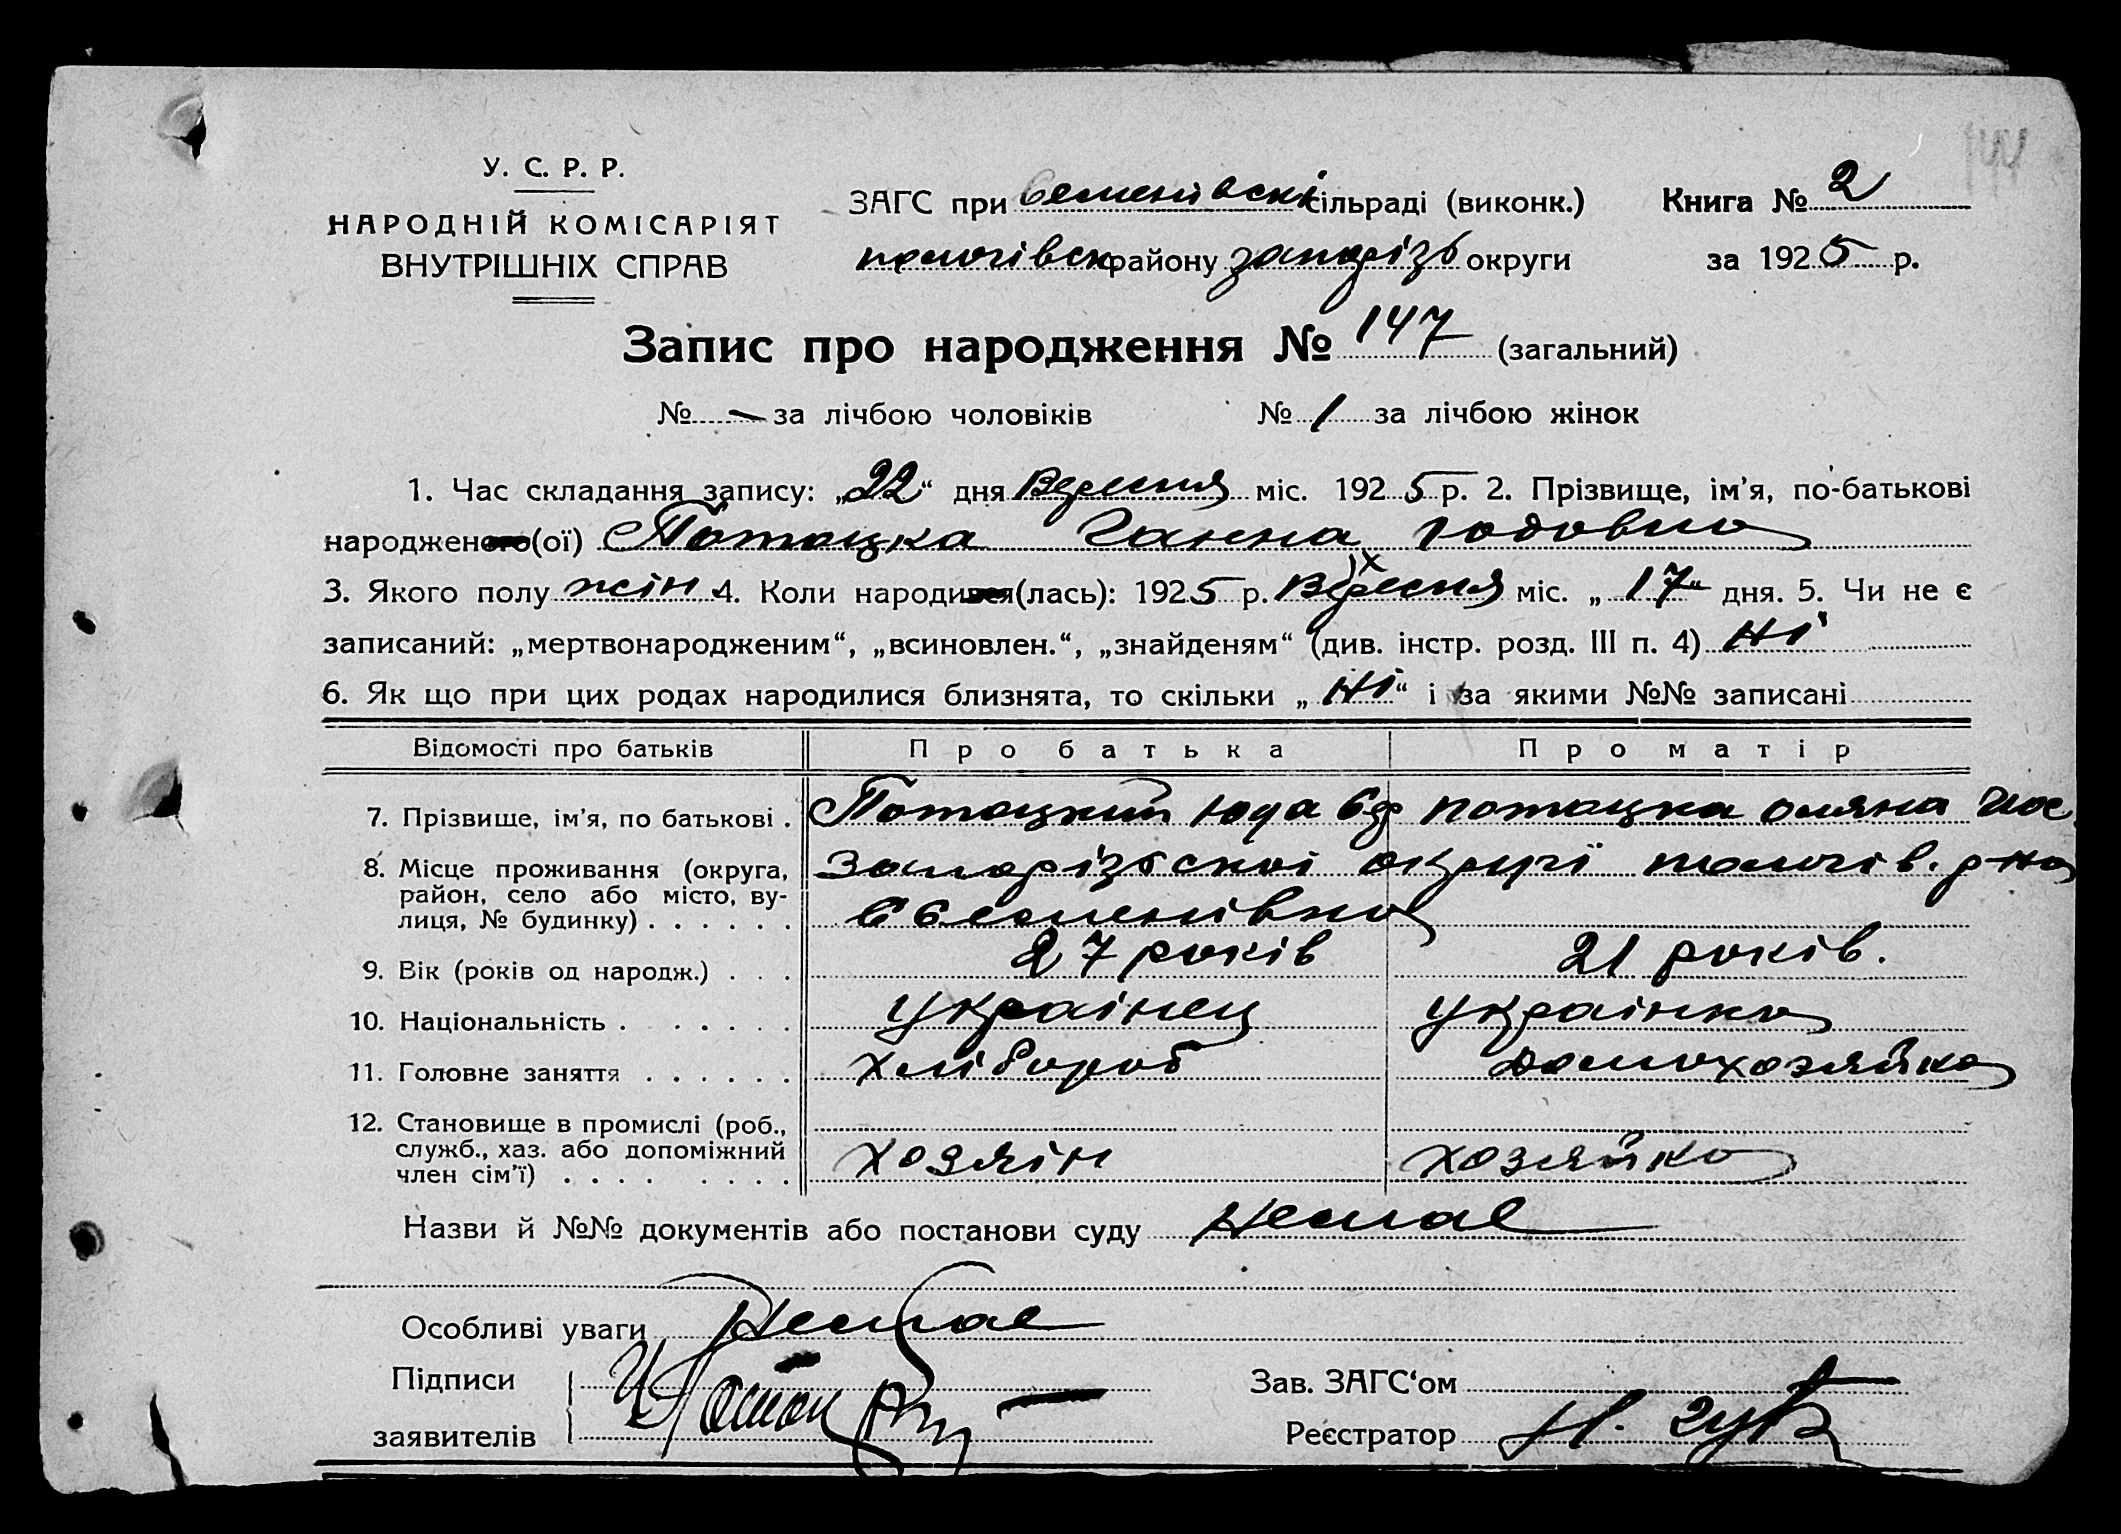 144
У. С. Р. Р.
НАРОДНІЙ КОМІСАРІЯТ
ВНУТРІШНІХ СПРАВ
ЗАГС при Семенівскі сільраді (виконк.)
пологівск району запорізь округи
Книга № 2
за 1925 р.
Запис про народження № 147 (загальний)
№ — за лічбою чоловіків № 1 за лічбою жінок
1. Час складання запису: „22“ дня Вересня міс. 1925 р. 2. Прізвище, ім'я, по-батькові
народженого(ої) Потоцка Ганна Юдовна
3. Якого полу жін 4. Коли народився(лась): 1925 р. Вересня міс. „17“ дня. 5. Чи не є
записаний: „мертвонародженим“, „всиновлен.“, „знайденям“ (див. інстр. розд. III п. 4) Ні
6. Як що при цих родах народилися близнята, то скільки „Ні“ і за якими №№ записані
Відомості про батьків Про батька Про матір
7. Прізвище, ім'я, по батькові . Потоцкий Юда Потоцка Оляна Йос.
8. Місце проживання (округа, Запорізської округі пологів. р-на
район, село або місто, ву-
лиця, № будинку) . . . . . . с Семенівка
9. Вік (років од народж.) . . . 27 років 21 років.
10. Національність . . . . . . Украінец Украінка
11. Головне заняття . . . . . . Хлібороб Домохозяйка
12. Становище в промислі (роб.,
служб., хаз. або допоміжний
член сім'ї) . . . . . . . . Хозяін хозяйка
Назви й №№ документів або постанови суду Немае
Особливі уваги Немае
Підписи
заявителів
Зав. ЗАГС'ом
Реєстратор Н. Зуб